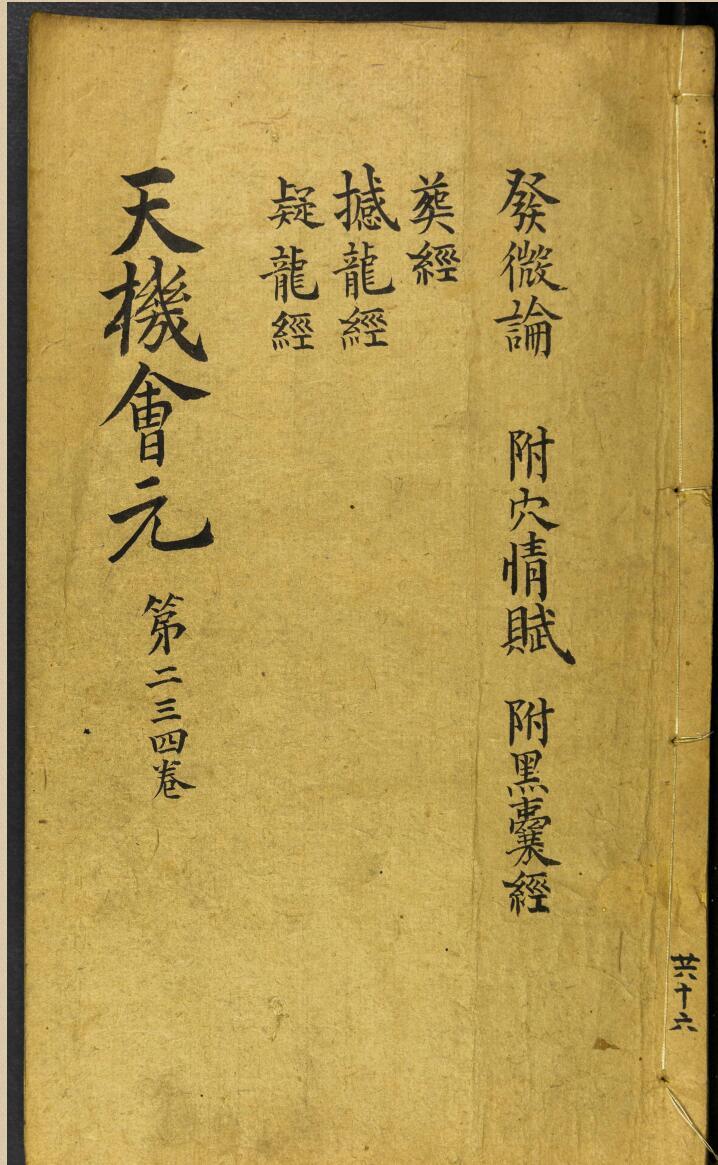 發微論 附穴情賦 附黑囊經
葬經
撼龍經
疑龍經
天機會元 第二三四卷
共十六